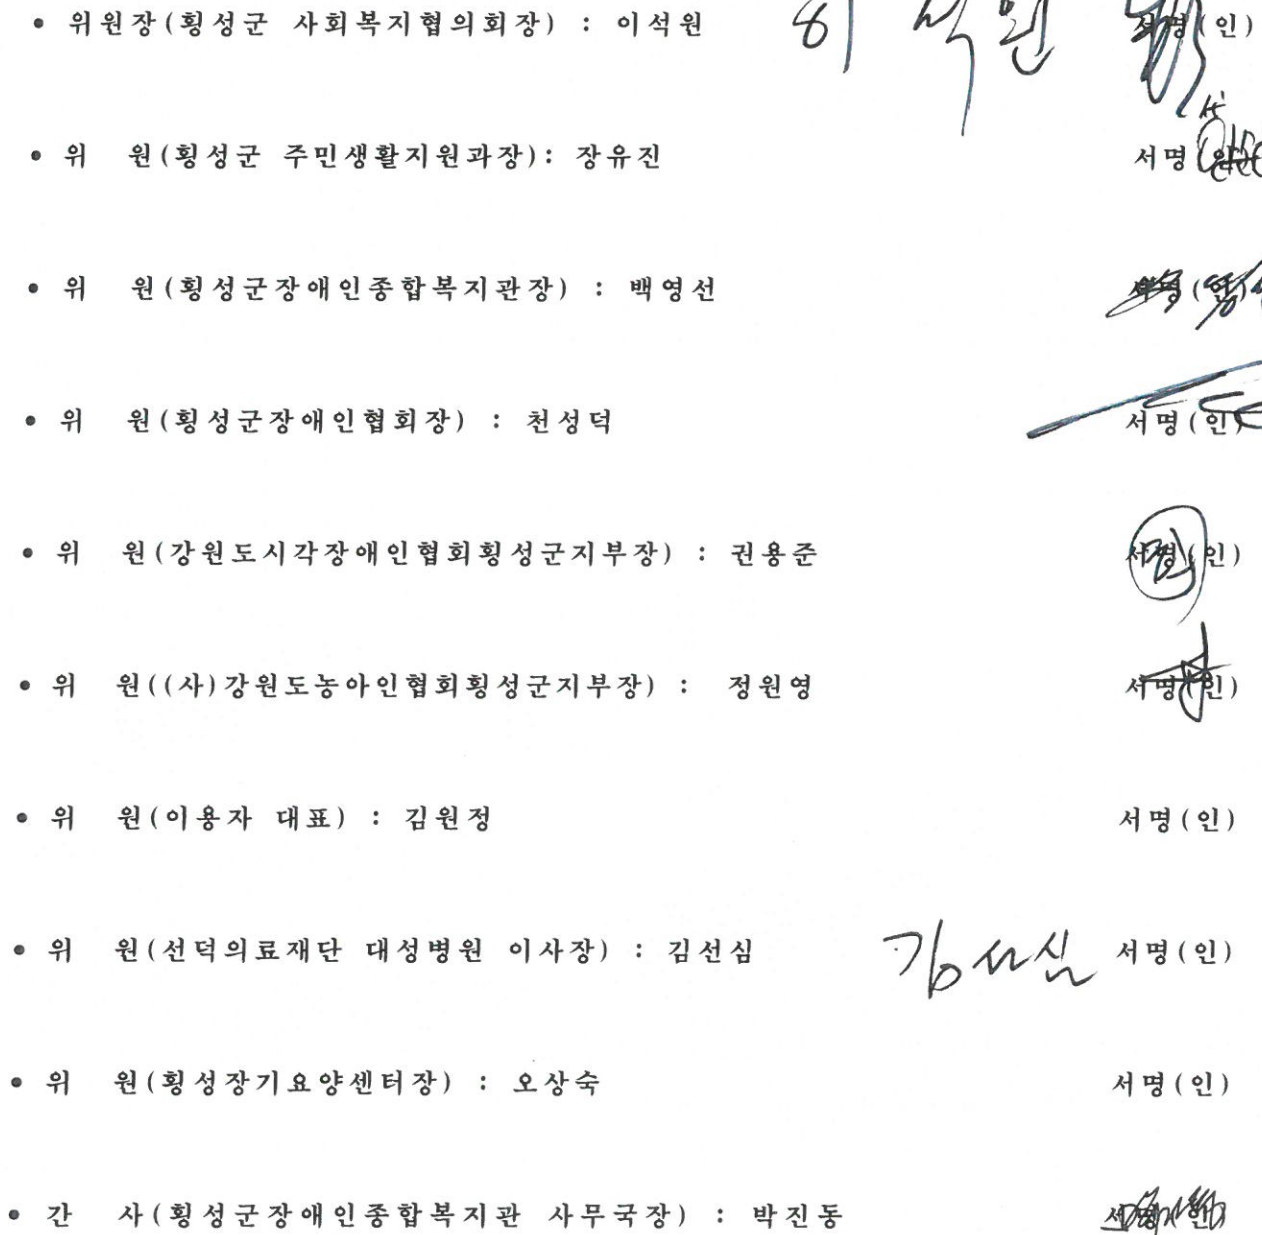 • 위원장(횡성군 사회복지협의회장) : 이석원 이석원 서명(인)
• 위 원(횡성군 주민생활지원과장): 장유진 서명
• 위 원(횡성군장애인종합복지관장) : 백영선 서명(인)
• 위 원(횡성군장애인협회장) : 천성덕 서명(인)
• 위 원(강원도시각장애인협회횡성군지부장) : 권용준 서명(인)
• 위 원((사)강원도농아인협회횡성군지부장) : 정원영 서명(인)
• 위 원(이용자 대표) : 김원정 서명(인)
• 위 원(선덕의료재단 대성병원 이사장) : 김선심 김선심 서명(인)
• 위 원(횡성장기요양센터장) : 오상숙 서명(인)
• 간 사(횡성군장애인종합복지관 사무국장) : 박진동 서명(인)